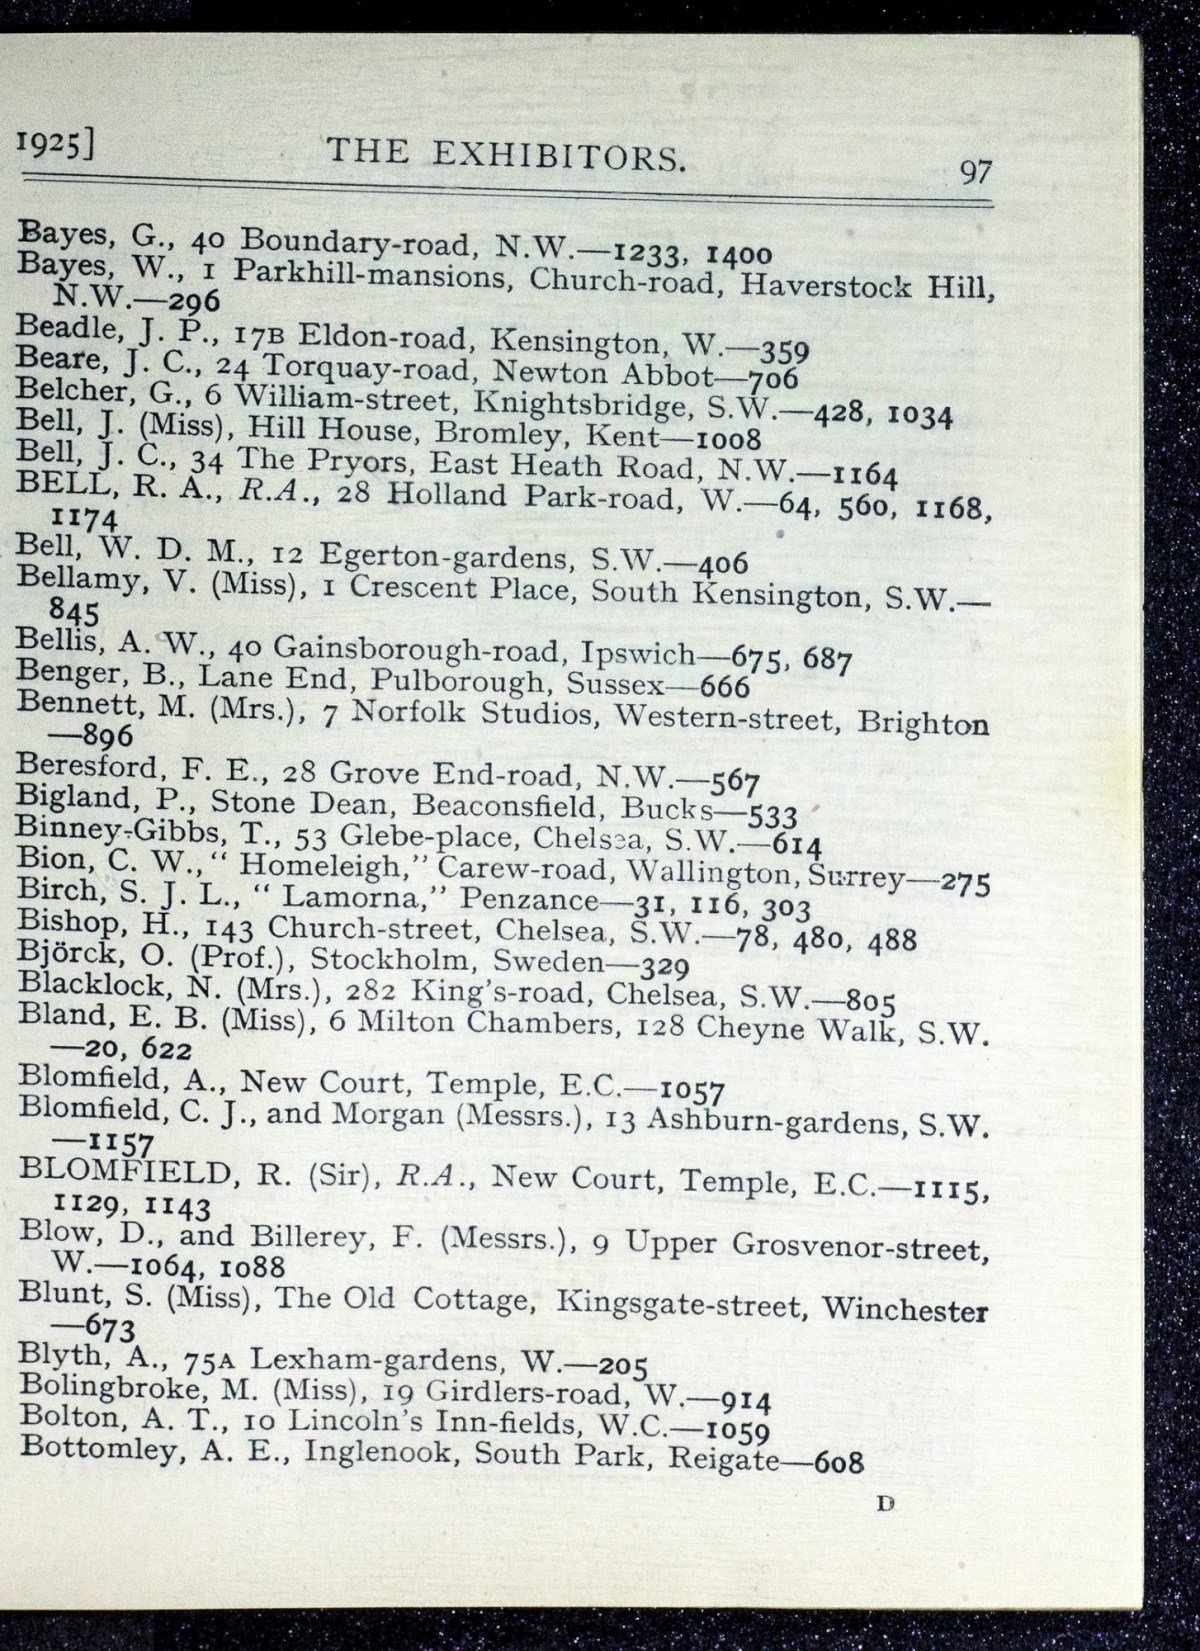 1925] THE EXHIBITORS. 97
Bayes, G., 40 Boundary-road, N.W.—1233, 1400
Bayes, W., 1 Parkhill-mansions, Church-road, Haverstock Hill,
N.W.—296
Beadle, J. P., 17B Eldon-road, Kensington, W.—359
Beare, J. C., 24 Torquay-road, Newton Abbot—706
Belcher, G., 6 William-street, Knightsbridge, S.W.—428, 1034
Bell, J. (Miss), Hill House, Bromley, Kent—1008
Bell, J. C., 34 The Pryors, East Heath Road, N.W.—1164
BELL, R. A., R.A., 28 Holland Park-road, W.—64, 560, 1168,
1174
Bell, W. D. M., 12 Egerton-gardens, S.W.—406
Bellamy, V. (Miss), 1 Crescent Place, South Kensington, S.W.—
845
Bellis, A. W., 40 Gainsborough-road, Ipswich—675, 687
Benger, B., Lane End, Pulborough, Sussex—666
Bennett, M. (Mrs.), 7 Norfolk Studios, Western-street, Brighton
—896
Beresford, F. E., 28 Grove End-road, N.W.—567
Bigland, P., Stone Dean, Beaconsfield, Bucks—533
Binney-Gibbs, T., 53 Glebe-place, Chelsea, S.W.—614
Bion, C. W., “ Homeleigh,” Carew-road, Wallington, Surrey—275
Birch, S. J. L., “ Lamorna,” Penzance—31, 116, 303
Bishop, H., 143 Church-street, Chelsea, S.W.—78, 480, 488
Björck, O. (Prof.), Stockholm, Sweden—329
Blacklock, N. (Mrs.), 282 King's-road, Chelsea, S.W.—805
Bland, E. B. (Miss), 6 Milton Chambers, 128 Cheyne Walk, S.W.
—20, 622
Blomfield, A., New Court, Temple, E.C.—1057
Blomfield, C. J., and Morgan (Messrs.), 13 Ashburn-gardens, S.W.
—1157
BLOMFIELD, R. (Sir), R.A., New Court, Temple, E.C.—1115,
1129, 1143
Blow, D., and Billerey, F. (Messrs.), 9 Upper Grosvenor-street,
W.—1064, 1088
Blunt, S. (Miss), The Old Cottage, Kingsgate-street, Winchester
—673
Blyth, A., 75A Lexham-gardens, W.—205
Bolingbroke, M. (Miss), 19 Girdlers-road, W.—914
Bolton, A. T., 10 Lincoln's Inn-fields, W.C.—1059
Bottomley, A. E., Inglenook, South Park, Reigate—608
D